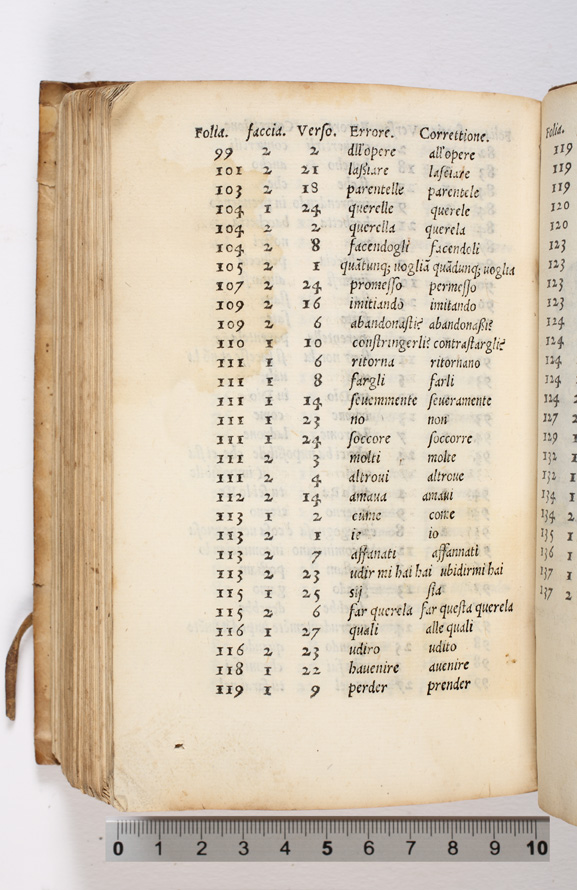 Folia. faccia. Verſo. Errore. Correttione.
99 2 2 dll'opere all'opere
101 2 21 laſtiare laſciare
103 2 18 parentelle parentele
104 1 24 querelle querele
104 2 2 querella querela
104 2 8 facendogli facendoli
105 2 1 quãtunq; uogliã quãdunq; uoglia
107 2 24 promeſſo permeſſo
109 2 16 imitiando imitando
109 2 6
110 1 10
111 1 6 ritorna ritornano
111 1 8 fargli farli
111 1 14 ſeuemmente ſeueramente
111 1 23 no non
111 1 24 ſoccore ſoccorre
111 2 3 molti molte
111 2 4 altroui altroue
112 2 14 amaua amaui
113 1 2 come
113 2 1 ie io
113 2 7 affanati affannati
113 2 23 udir mi hai hai ubidirmi hai
115 1 25 sij ſia
115 2 6 far querela far queſta querela
116 1 27 quali alle quali
116 2 23 udiro udito
118 1 22 hauenire auenire
119 1 9 perder prender
Folia.
119
119
119
120
120
123
123
123
123
124
124
124
124 2
127 2
129 1
132 1
132 1
134 1
134 2
135 1
136 1
137 1
137 2
0 1 2 3 4 5 6 7 8 9 10